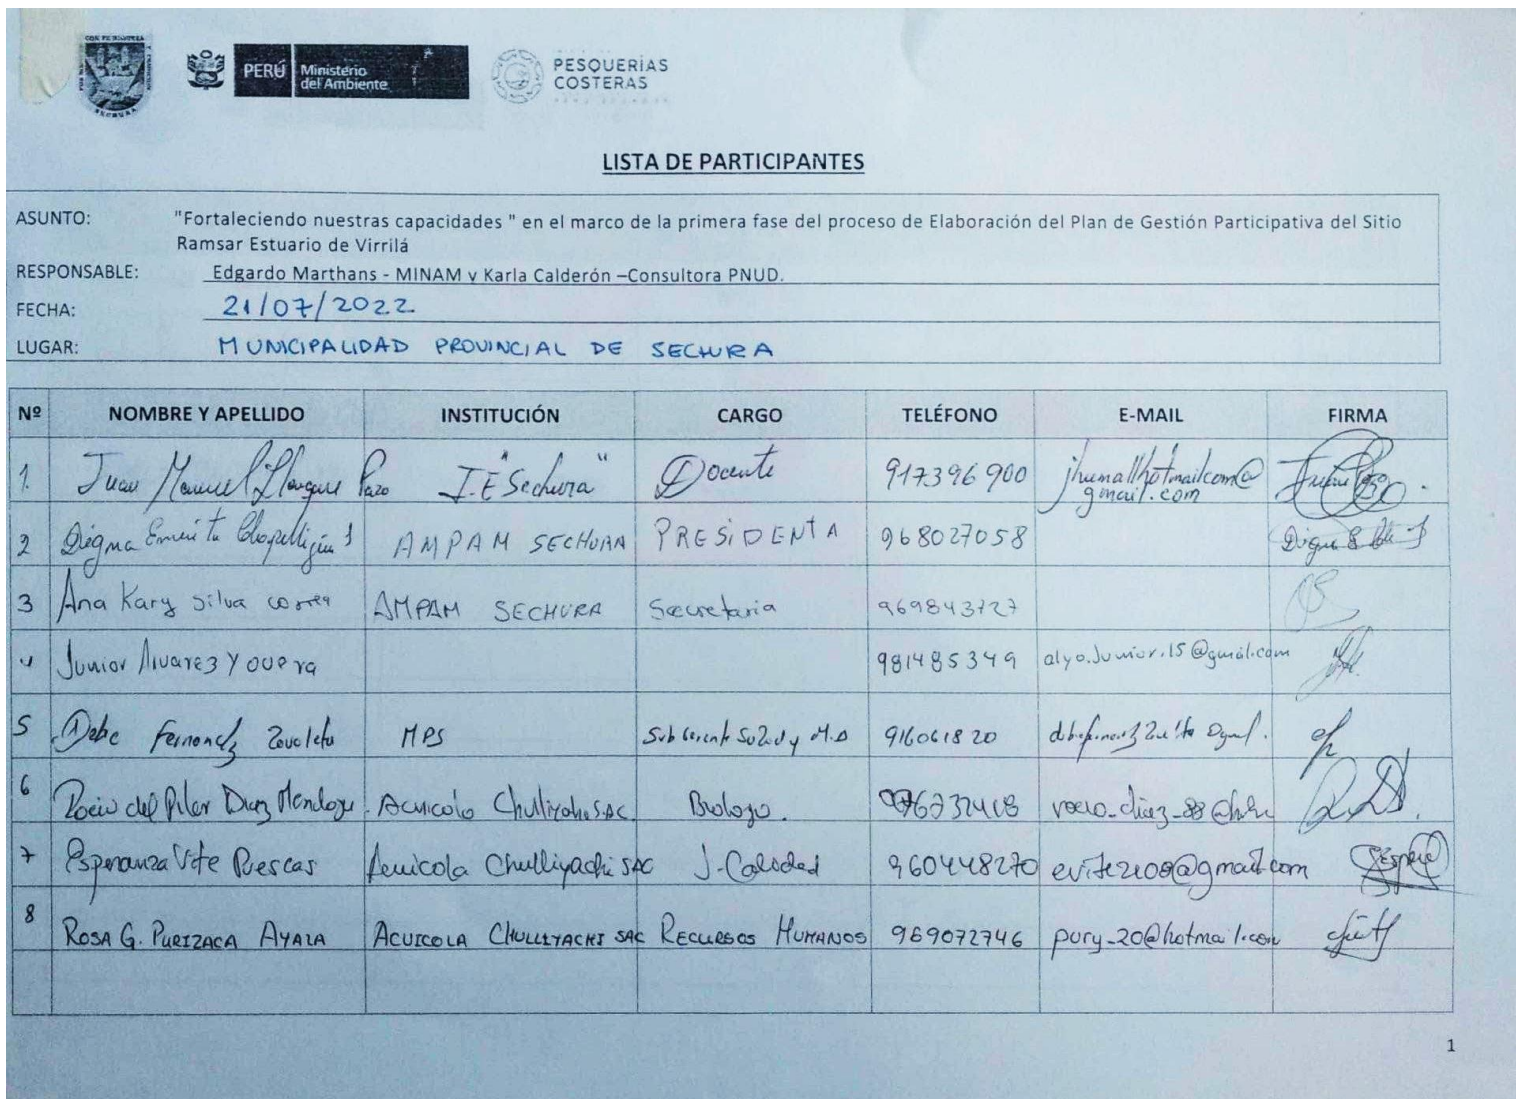 SECHURA
PERÚ Ministerio
del Ambiente
PESQUERÍAS
COSTERAS
LISTA DE PARTICIPANTES
ASUNTO: "Fortaleciendo nuestras capacidades " en el marco de la primera fase del proceso de Elaboración del Plan de Gestión Participativa del Sitio
Ramsar Estuario de Virrilá
RESPONSABLE: Edgardo Marthans - MINAM y Karla Calderón –Consultora PNUD.
FECHA: 21/07/2022
LUGAR: MUNICIPALIDAD PROVINCIAL DE SECHURA
Nº NOMBRE Y APELLIDO INSTITUCIÓN CARGO TELÉFONO E-MAIL FIRMA
1. Juan Manuel Llenque Pazo I.E "Sechura" Docente 917396900 jhumallhotmailcom@
gmail.com
2 Digma Emerita AMPAM SECHURA PRESIDENTA 968027058
3 Ana Kary Silva correa AMPAM SECHURA Secretaria 969843727
4 Junior Alvarez Yovera 981485349 alyo.Junior.15@gmail.com
5 Fernandez Zavaleta MPS 916061820
6 Rocio del Pilar Diaz Mendoza Acuicola SAC. Biologo.
7 Esperanza Vite Puescas Acuicola Chulliyachi SAC J-Calidad 960448270 evite2109@gmail.com
8 ROSA G. PURIZACA AYALA ACUICOLA CHULLIYACHI SAC RECURSOS HUMANOS 969072746 pury-20@hotmail.com
1